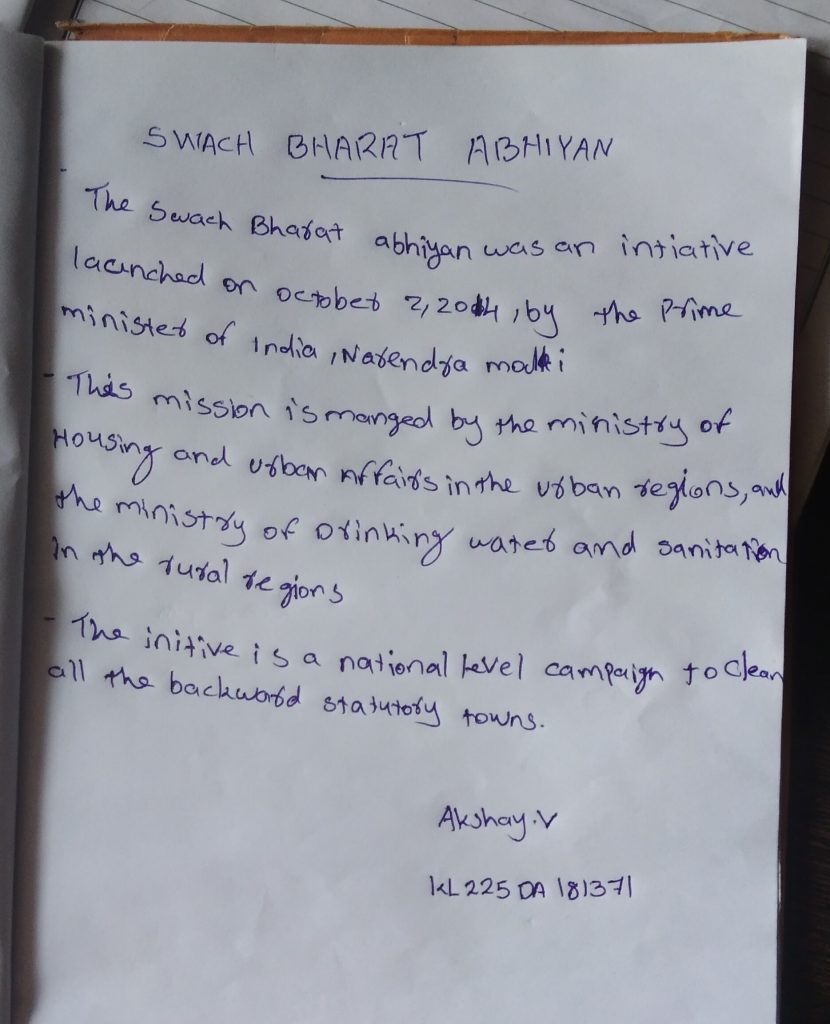 SWACH BHARAT ABHIYAN
- The Swach Bharat abhiyan was an intiative
launched on october 2, 2014, by the Prime
minister of India, Narendra modi
- This mission is manged by the ministry of
Housing and urban Affairs in the urban regions, and
the ministry of Drinking water and sanitation
in the rural regions
- The initive is a national level campaign to clean
all the backword statutory towns.
Akshay.V
KL225DA181371